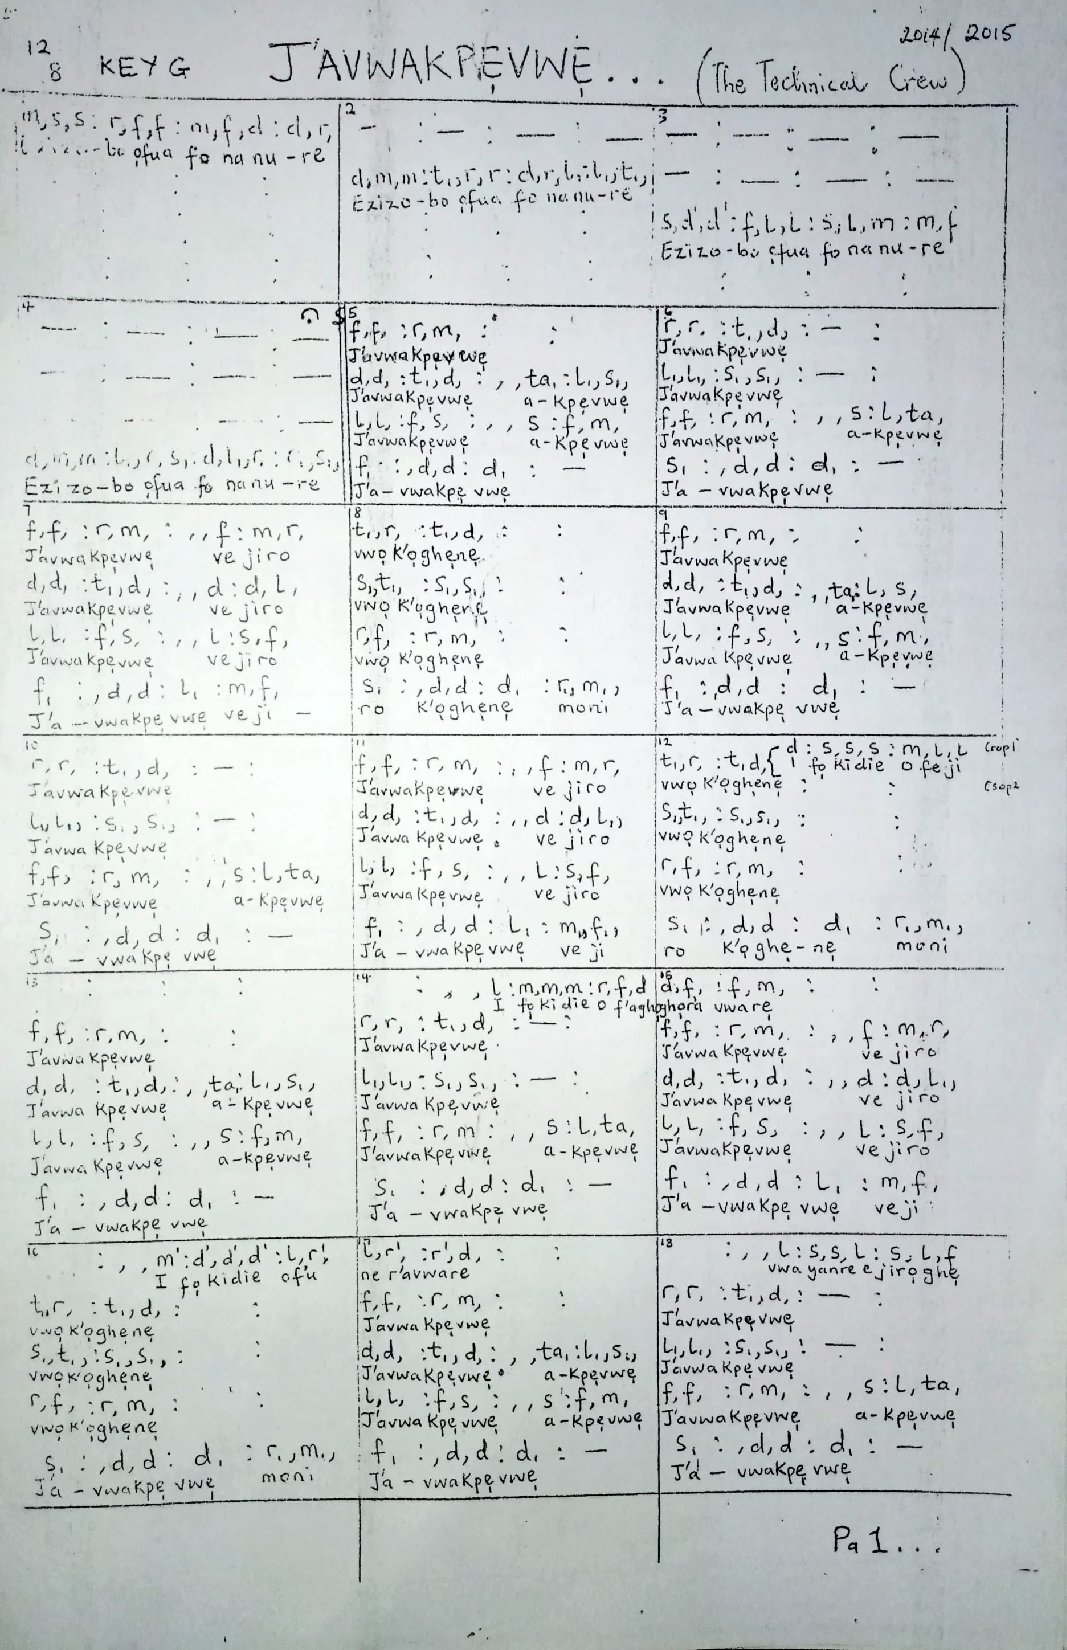 2014/ 2015
12
8 KEY G J'AVWAKPẸVWẸ... (The Technical Crew)
m,s,s : r,f,f : m,f,d : d,r,
-bo ọfua fo na nu-re
2
— : — : — : —
d,m,m : t₁,r,r : d,r,l₁ : l₁,t₁,
Ezizo-bo ọfua fo nanu-re
3
— : — : — : —
— : — : — : —
s,d',d' : f,L,L : s,L,m : m,f
Ezizo-bo ọfua fo na nu-re
4
— : — : — : —
— : — : — : —
Ezizo-bo ọfua fo nanu-re
5
f,f, : r,m, : :
J'avwakpẹvwẹ
d,d, : t₁,d, : , ,ta₁ : L₁,s₁,
J'avwakpẹvwẹ a-kpẹvwẹ
L,L, : f,s, : , , s : f,m,
J'avwakpẹvwẹ a-kpẹvwẹ
f₁ : ,d,d : d₁ : —
J'a-vwakpẹ vwẹ
6
r,r, : t₁,d, : — :
J'avwakpẹvwẹ
L₁,L₁, : s₁,s₁, : — :
J'avwakpẹvwẹ
f,f, : r,m, : , , s : L,ta,
J'avwakpẹvwẹ a-kpẹvwẹ
s₁ : ,d,d : d₁ : —
J'a-vwakpẹvwẹ
7
f,f, : r,m, : , , f : m,r,
J'avwakpẹvwẹ ve jiro
d,d, : t₁,d, : , , d : d,L,
J'avwakpẹvwẹ ve jiro
L,L, : f,s, : , , L : s,f,
J'avwakpẹvwẹ ve jiro
f₁ : ,d,d : L₁ : m,f,
J'a-vwakpẹ vwẹ ve ji -
8
t₁,r, : t₁,d, : :
vwọ k'ọghẹnẹ
s₁,t₁, : s₁,s₁, : :
vwọ k'ọghẹnẹ
r,f, : r,m, : :
vwọ k'ọghẹnẹ
s₁ : ,d,d : d₁ : r₁,m₁,
ro k'ọghẹnẹ moni
9
f,f, : r,m, : :
J'avwakpẹvwẹ
d,d, : t₁,d, : , ,ta₁ : L, s,
J'avwakpẹvwẹ a-kpẹvwẹ
L,L, : f,s, : , , s : f,m,
J'avwakpẹvwẹ a-kpẹvwẹ
f₁ : ,d,d : d₁ : —
J'a-vwakpẹ vwẹ
10
r,r, : t₁,d, : —
J'avwakpẹvwẹ
L₁,L₁, : s₁,s₁, : — :
J'avwakpẹvwẹ
f,f, : r,m, : , , s : L,ta,
J'avwakpẹvwẹ a-kpẹvwẹ
s₁ : ,d,d : d₁ : —
J'a - vwakpẹ vwẹ
11
f,f, : r,m, : , , f : m,r,
J'avwakpẹvwẹ ve jiro
d,d, : t₁,d, : , , d : d,L₁,
J'avwakpẹvwẹ ve jiro
L,L, : f,s, : , , L : s,f,
J'avwakpẹvwẹ ve jiro
f₁ : ,d,d : L₁ : m₁,f₁,
J'a-vwakpẹvwẹ ve ji
12
t₁,r, : t₁,d,{ d : s,s,s : m,L,L (sop1
vwọ k'ọghẹnẹ I fọ kidie o feji
(sop2
s₁,t₁, : s₁,s₁, : :
vwọ k'ọghẹnẹ
r,f, : r,m, :
vwọ k'ọghẹnẹ
s₁ : ,d,d : d₁ : r₁,m₁,
ro k'ọghẹ-nẹ moni
13
: : :
f,f, : r,m, : :
J'avwakpẹvwẹ
d,d, : t₁,d, : , ,ta₁ : L₁,s₁,
J'avwakpẹvwẹ a-kpẹvwẹ
L,L, : f,s, : , , s : f,m,
J'avwakpẹvwẹ a-kpẹvwẹ
f₁ : ,d,d : d₁ : —
J'a-vwakpẹ vwẹ
14
: , , L : m,m,m : r,f,d
I fọ kidie o f'aghọghọra vware
r,r, : t₁,d, : — :
J'avwakpẹvwẹ
L₁,L₁, : s₁,s₁, : — :
J'avwakpẹvwẹ
f,f, : r,m : , , s : L,ta,
J'avwakpẹvwẹ a-kpẹvwẹ
s₁ : ,d,d : d₁ : —
J'a - vwakpẹ vwẹ
15
d,f, : f,m, : :
f,f, : r,m, : , , f : m,r,
J'avwakpẹvwẹ ve jiro
d,d, : t₁,d, : , , d : d,L₁,
J'avwakpẹvwẹ ve jiro
L,L, : f,s, : , , L : s,f,
J'avwakpẹvwẹ ve jiro
f₁ : ,d,d : L₁ : m,f,
J'a-vwakpẹ vwẹ veji
16
: , , m' : d',d',d' : L,r',
I fọ kidie ofu
t₁,r, : t₁,d, : :
vwọ k'ọghẹnẹ
s₁,t₁, : s₁,s₁, : :
vwọ k'ọghẹnẹ
r,f, : r,m, : :
vwọ k'ọghẹnẹ
s₁ : ,d,d : d₁ : r₁,m₁,
J'a-vwakpẹ vwẹ moni
17
L,r', : r',d, : :
ne r'avware
f,f, : r,m, : :
J'avwakpẹvwẹ
d,d, : t₁,d, : , ,ta₁ : L₁,s₁,
J'avwakpẹvwẹ a-kpẹvwẹ
L,L, : f,s, : , , s : f,m,
J'avwakpẹvwẹ a-kpẹvwẹ
f₁ : ,d,d : d₁ : —
J'a-vwakpẹ vwẹ
18
: , , L : s,s,L : s,L,f
vwa yanre ejiro ghẹ
r,r, : t₁,d, : — :
J'avwakpẹvwẹ
L₁,L₁, : s₁,s₁, : — :
J'avwakpẹvwẹ
f,f, : r,m, : , , s : L,ta,
J'avwakpẹvwẹ a-kpẹvwẹ
s₁ : ,d,d : d₁ : —
J'a - vwakpẹ vwẹ
Pa 1...